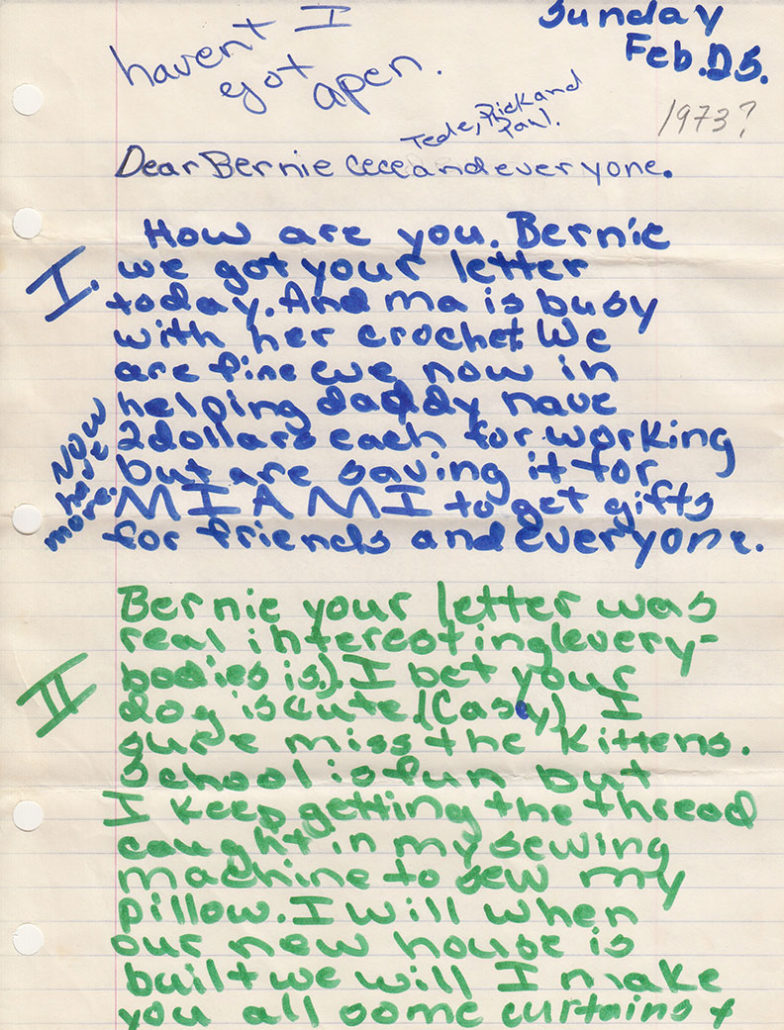 Sunday
Feb. 25.
1973?
havent I
got apen.
Tede, Rick and
Paul.
Dear Bernie cece and everyone.
I.
How are you. Bernie
we got your letter
today. And ma is busy
with her crochet We
are fine we now in
helping daddy have
2dollars each for working
but are saving it for
MIAMI to get gifts
for friends and everyone.
Now
have
more.
II
Bernie your letter was
real interesting (every-
bodies is). I bet your
dog is cute (Casey) I
sure miss the kittens.
School is fun but
I keep getting the thread
caught in my sewing
machine to sew my
pillow. I will when
our new house is
built we will I make
you all some curtains +